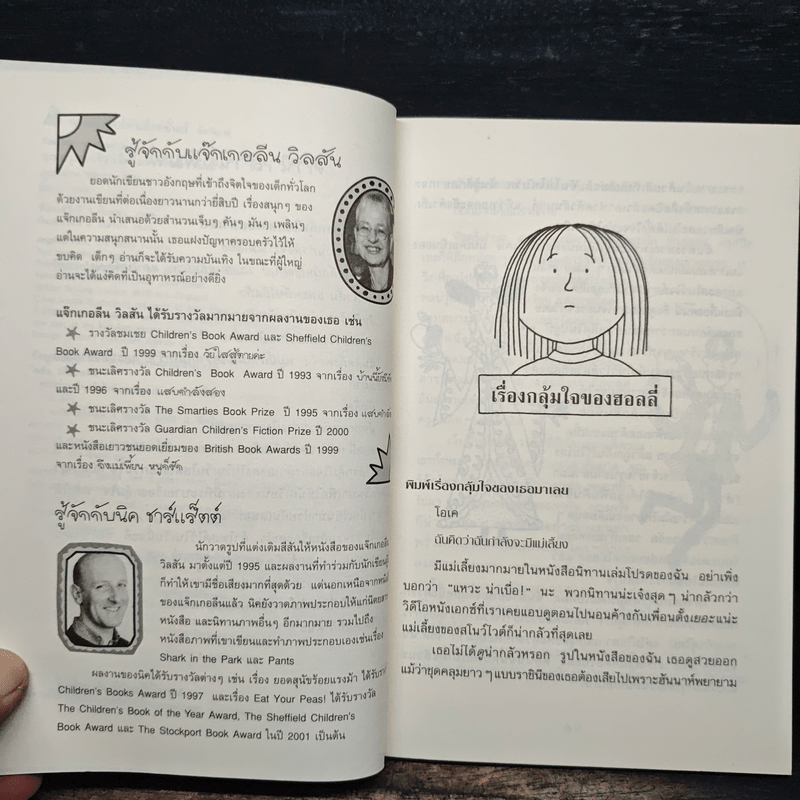 รู้จักกับแจ๊กเกอลีน วิลสัน
ยอดนักเขียนชาวอังกฤษที่เข้าถึงจิตใจของเด็กทั่วโลก
ด้วยงานเขียนที่ต่อเนื่องยาวนานกว่ายี่สิบปี เรื่องสนุกๆ ของ
แจ๊กเกอลีน นำเสนอด้วยสำนวนเจ็บๆ คันๆ มันๆ เพลินๆ
แต่ในความสนุกสนานนั้น เธอแฝงปัญหาครอบครัวไว้ให้
ขบคิด เด็กๆ อ่านก็จะได้รับความบันเทิง ในขณะที่ผู้ใหญ่
อ่านจะได้แง่คิดที่เป็นอุทาหรณ์อย่างดียิ่ง
แจ๊กเกอลีน วิลสัน ได้รับรางวัลมากมายจากผลงานของเธอ เช่น
รางวัลชมเชย Children's Book Award และ Sheffield Children's
Book Award ปี 1999 จากเรื่อง วัยใสสู้ตายค่ะ
ชนะเลิศรางวัล Children's Book Award ปี 1993 จากเรื่อง
และปี 1996 จากเรื่อง แสบกำลังสอง
ชนะเลิศรางวัล The Smarties Book Prize ปี 1995 จากเรื่อง
ชนะเลิศรางวัล Guardian Children's Fiction Prize ปี 2000
และหนังสือเยาวชนยอดเยี่ยมของ British Book Awards ปี 1999
จากเรื่อง จึงแม่เพี้ยน หนูก็ซัด
รู้จักกับนิค ชาร์แร็ตต์
นักวาดรูปที่แต่งเติมสีสันให้หนังสือของแจ๊กเกอลีน
วิลสัน มาตั้งแต่ปี 1995 และผลงานที่ทำร่วมกับนักเขียน
ก็ทำให้เขามีชื่อเสียงมากที่สุดด้วย แต่นอกเหนือจาก
ของแจ๊กเกอลีนแล้ว นิคยังวาดภาพประกอบให้แก่
หนังสือ และนิทานภาพอื่นๆ อีกมากมาย รวมไปถึง
หนังสือภาพที่เขาเขียนและทำภาพประกอบเองเช่นเรื่อง
Shark in the Park และ Pants
ผลงานของนิคได้รับรางวัลต่างๆ เช่น เรื่อง ยอดสุนัขร้อยแรงม้า ได้รับ
Children's Books Award ปี 1997 และเรื่อง Eat Your Peas! ได้รับรางวัล
The Children's Book of the Year Award, The Sheffield Children's
Book Award และ The Stockport Book Award ในปี 2001 เป็นต้น
เรื่องกลุ้มใจของฮอลลี่
พิมพ์เรื่องกลุ้มใจของเธอมาเลย
โอเค
ฉันคิดว่าฉันกำลังจะมีแม่เลี้ยง
มีแม่เลี้ยงมากมายในหนังสือนิทานเล่มโปรดของฉัน อย่าเพิ่ง
บอกว่า "แหวะ น่าเบื่อ!" นะ พวกนิทานน่ะเจ๋งสุดๆ น่ากลัวกว่า
วิดีโอหนังเอกซ์ที่เราเคยแอบดูตอนไปนอนค้างกับเพื่อนตั้งเยอะแน่ะ
แม่เลี้ยงของสโนว์ไวต์ก็น่ากลัวที่สุดเลย
เธอไม่ได้ดูน่ากลัวหรอก รูปในหนังสือของฉัน เธอดูสวยออก
แม้ว่าชุดคลุมยาวๆ แบบราชินีของเธอต้องเสียไปเพราะฮันนาห์พยายาม